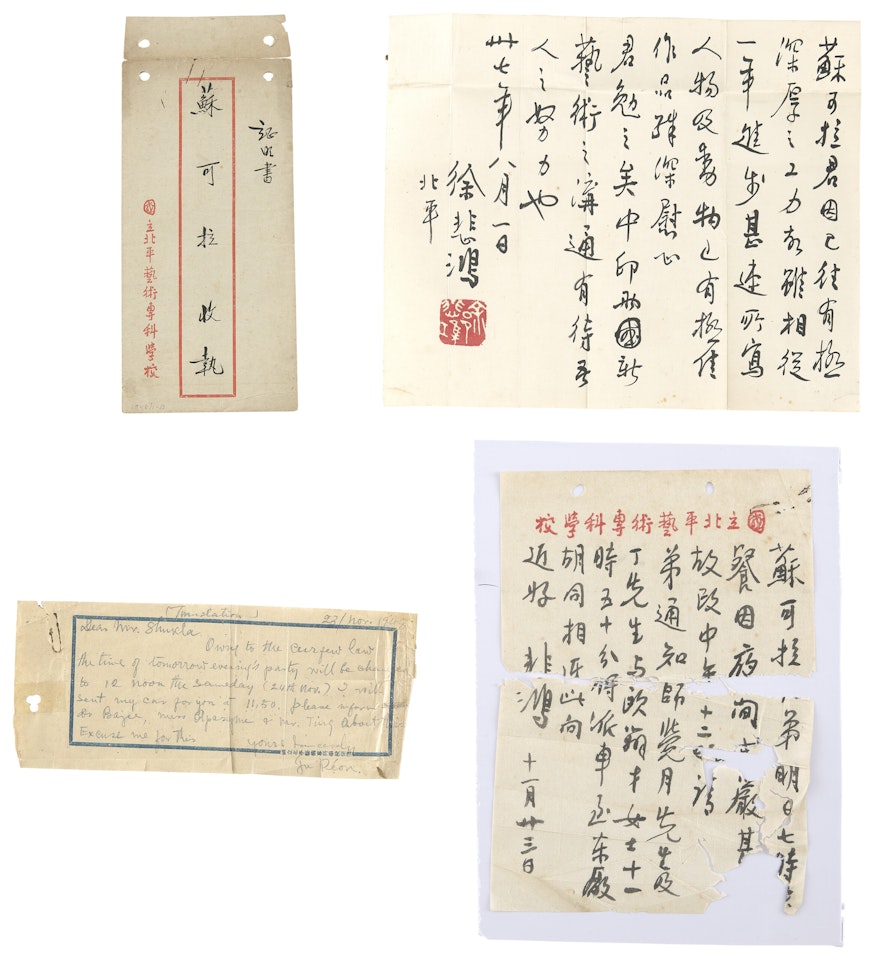 証明書
蘇可拉收執
國立北平藝術專科學校
蘇可拉君因已往有極
深厚之工力故雖相從
一年進步甚速所寫
人物及動物已有極佳
作品殊深慰心
君勉之矣中印两國新
藝術之溝通有待吾
人之努力也
卅七年八月一日
徐悲鴻
北平
(Translation) 23/Nov. 19
Dear Mr. Shukla.
Owing to the curfew law
the time of tomorrow evening's party will be
to 12 noon the sameday (24th Nov.) I will
sent my car for you at 11,50. please inform
Dr miss & mr. Ting about
Excuse me for this
yours sincerely
Ju Péon.
國立北平藝術專科學校
蘇可拉 弟明日七時
餐因夜間 嚴
故改中午十二 請
弟通知師覺月先生及
丁先生與歐 才女士十一
時五十分將派車至东廠
胡同相迓此向
近好 悲鴻 十一月廿三日